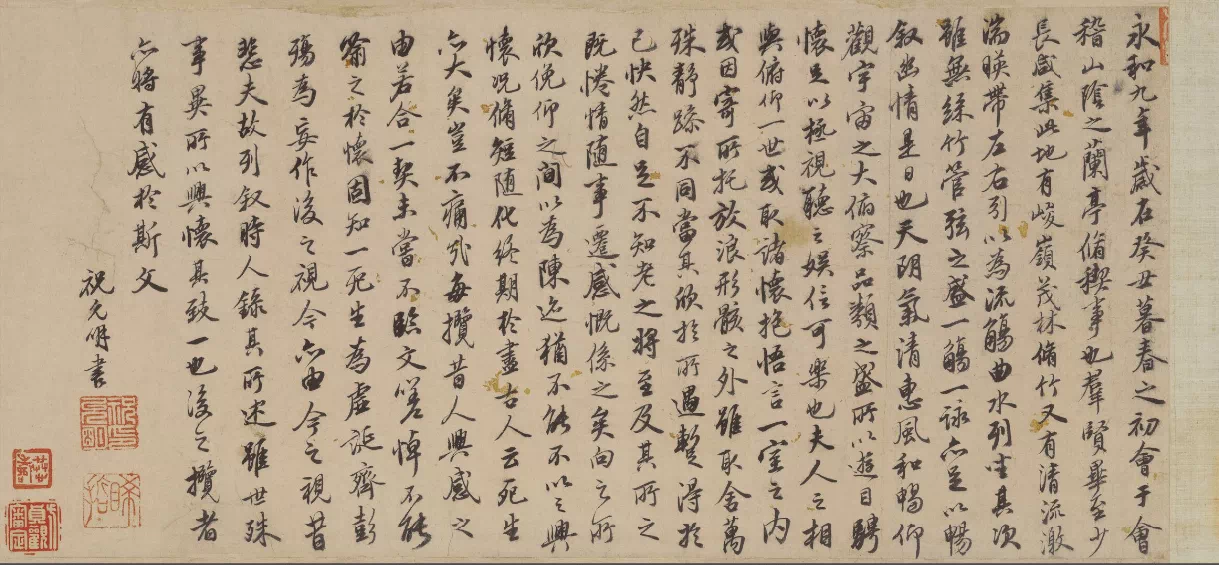 永和九年歲在癸丑暮春之初會于會
稽山陰之蘭亭脩稧事也羣賢畢至少
長咸集此地有峻嶺茂林脩竹又有清流激
湍暎帶左右引以為流觴曲水列坐其次
雖無絲竹管弦之盛一觴一詠亦足以暢
敘幽情是日也天朗氣清惠風和暢仰
觀宇宙之大俯察品類之盛所以遊目騁
懷足以極視聽之娛信可樂也夫人之相
與俯仰一世或取諸懷抱悟言一室之內
或因寄所托放浪形骸之外雖取舍萬
殊靜躁不同當其欣於所遇暫得於
己快然自足不知老之將至及其所之
既惓情隨事遷感慨係之矣向之所
欣俛仰之間以為陳迹猶不能不以之興
懷況脩短隨化終期於盡古人云死生
亦大矣豈不痛哉每攬昔人興感之
由若合一契未嘗不臨文嗟悼不能
喻之於懷固知一死生為虛誕齊彭
殤為妄作後之視今亦由今之視昔
悲夫故列敘時人錄其所述雖世殊
事異所以興懷其致一也後之攬者
亦將有感於斯文
祝允明書